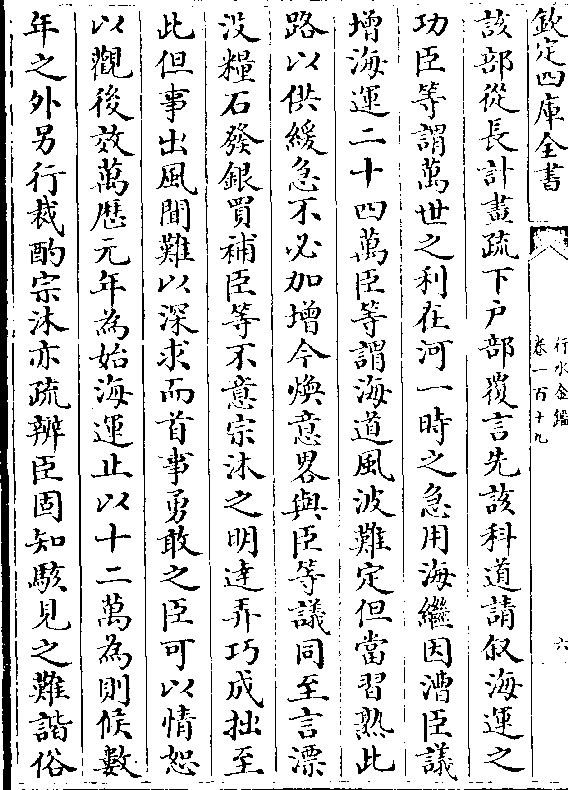 欽定四庫全書
行水金鑑
卷一百十九
六
該部從長計畫疏下户部覆言先該科道請叙海運之
功臣等謂萬世之利在河一時之急用海繼因漕臣議
增海運二十四萬臣等謂海道風波難定但當習熟此
路以供緩急不必加增今煥意畧與臣等議同至言漂
没糧石發銀買補臣等不意宗沐之明達弄巧成拙至
此但事出風聞難以深求而首事勇敢之臣可以情恕
以觀後效萬歴元年為始海運止以十二萬為則候數
年之外另行裁酌宗沐亦疏辨臣固知駭見之難諧俗